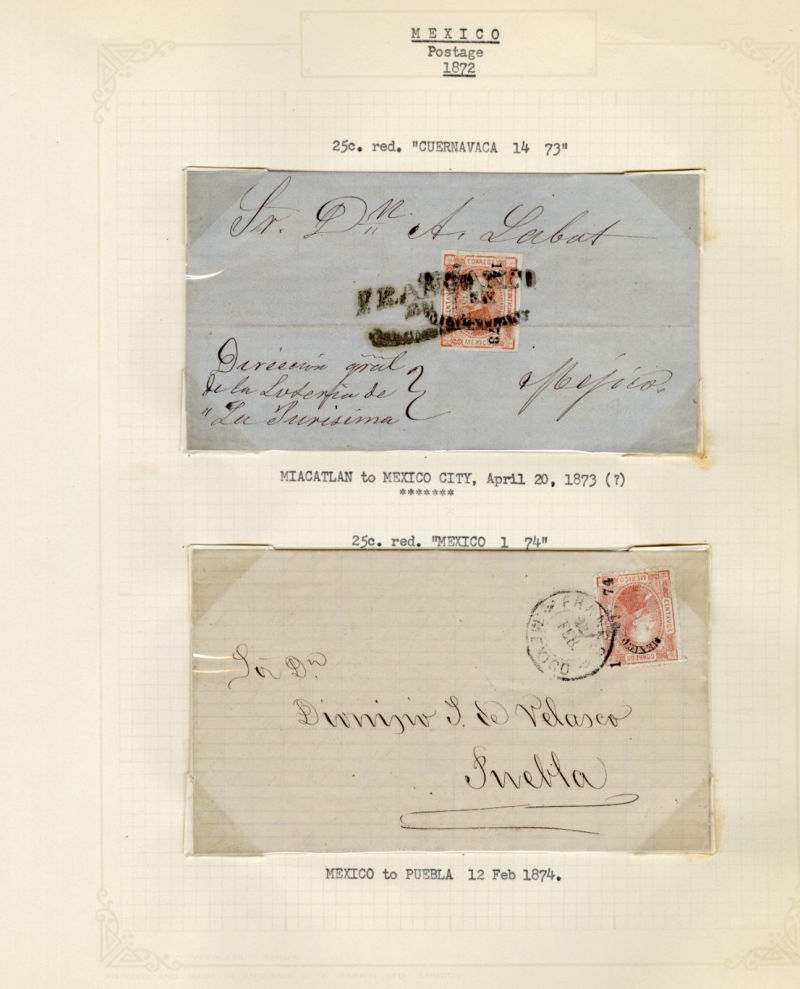 MEXICO
Postage
1872
25c. red. "CUERNAVACA 14 73"
Sr. Dn. A. Labat
CORREOS
14
FRANQUEADO
EN
73
MEXICO
Direccion gral
de la Loteria de
"La Purisima
Mejico.
MIACATLAN to MEXICO CITY, April 20, 1873 (?)
*******
25c. red. "MEXICO 1 74"
74
MEXICO
CENTAVOS
FRANCO
FEB.
MEXICO
MEXICO
1
CORREOS
Sor Dn
Dionisio J. de Velasco
Puebla
MEXICO to PUEBLA 12 Feb 1874.